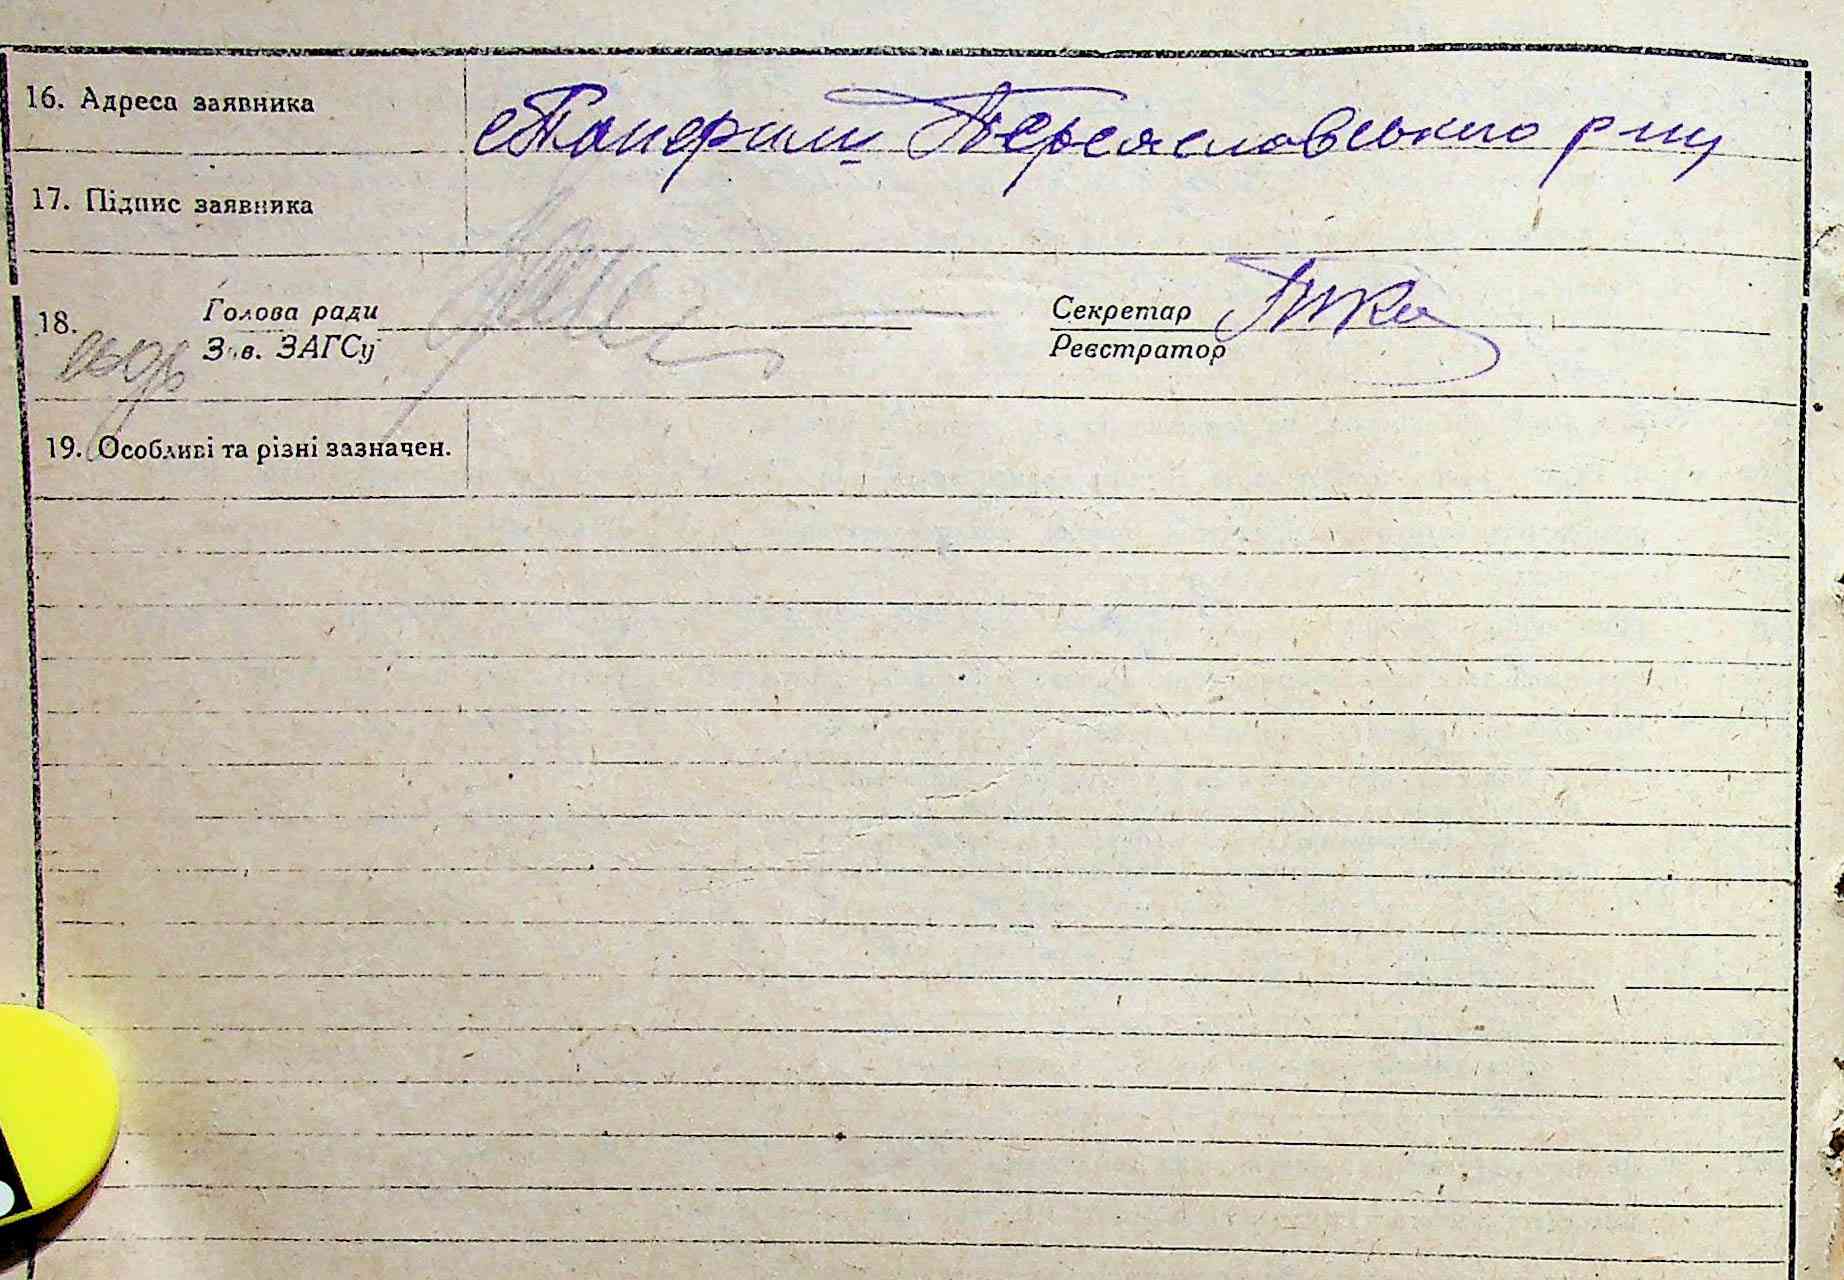 16. Адреса заявника с Панфили Переяславського р-ну
17. Підпис заявника
18. Голова ради Секретар
Зав. ЗАГСу Реєстратор
19. Особливі та різні зазначен.